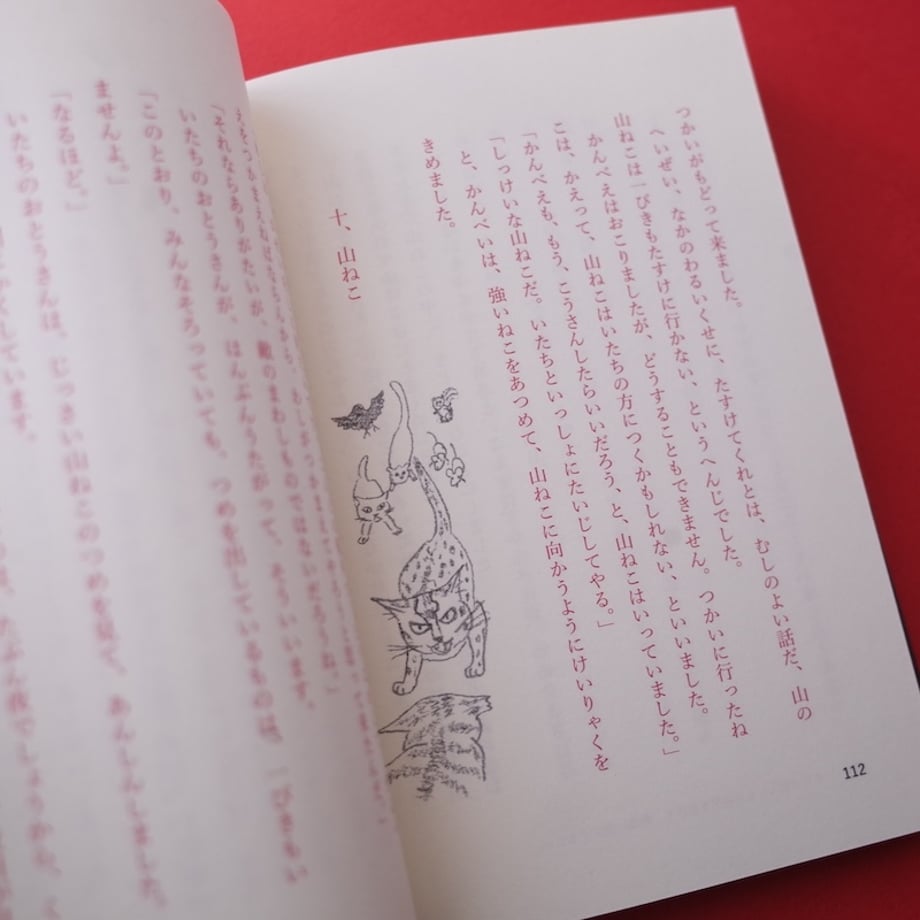 つかいがもどって来ました。
へいぜい、なかのわるいくせに、たすけてくれとは、むしのよい話だ、山の
山ねこは一ぴきもたすけに行かない、というへんじでした。
かんべえはおこりましたが、どうすることもできません。つかいに行ったね
こは、かえって、山ねこはいたちの方につくかもしれない、といいました。
「かんべえも、もう、こうさんしたらいいだろう、と、山ねこはいっていました。」
「しっけいな山ねこだ。いたちといっしょにたいじしてやる。」
と、かんべいは、強いねこをあつめて、山ねこに向かうようにけいりゃくを
きめました。
十、山ねこ
112
「それならありがたいが、敵のまわしものではないだろうね。」
いたちのおとうさんが、はんぶんうたがって、そういいます。
「このとおり、みんなそろっていても、つめを出しているものは、一ぴきもい
ませんよ。」
「なるほど。」
いたちのおとうさんは、じっさい山ねこのつめを見て、あんしんしました。